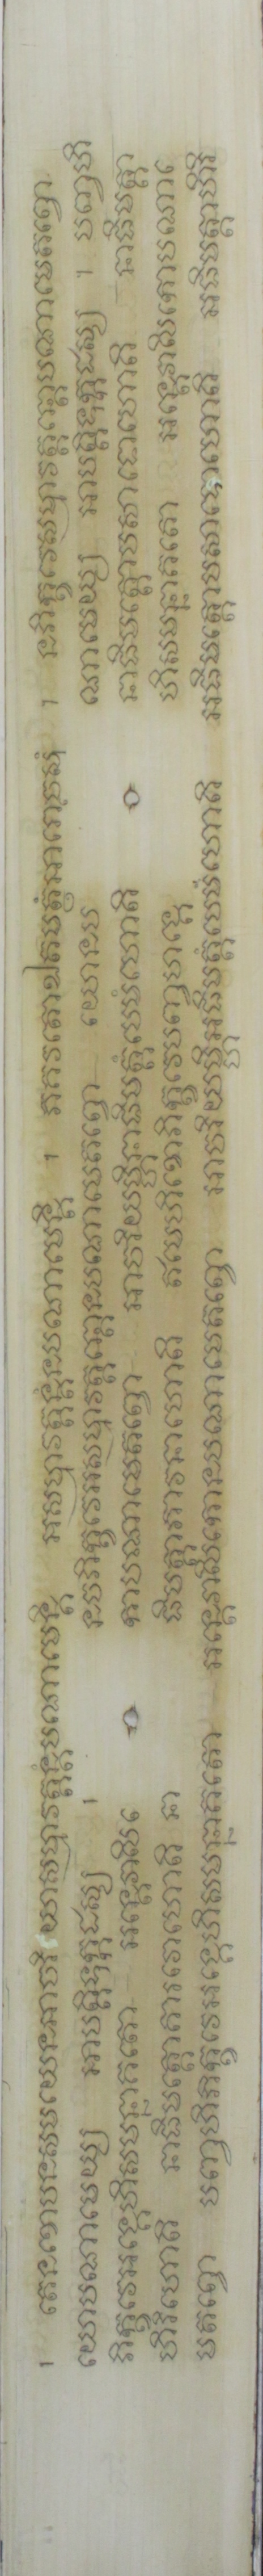 ។ តេនខោបនសមយេនអាចរិយាសម្មាវត្តន្តំបណាមេន្តិ អសម្មាវត្តន្តំនបណាមេន្តិ ។ ភគវតោឯតមត្ថំអារោចេសុំ ។ នភិក្ខវេសម្មាវត្តន្តោបណាមេតព្វោ
យោបណាមេយ្យ អាបត្តិទុក្កដស្ស ។ នចភិក្ខវេអសម្មាវត្តន្តោនបណាមេតព្វោ យោនប ណាមេយ្យ អាបត្តិទុក្កដស្ស ។ បញ្ចហិ
ភិក្ខវេអង្គេហិសមន្នាគតោ អន្តេវាសិ កោបណាមេតព្វោ អាចរិយម្ហិនាធិមត្តំបេមំហោតិ នាធិមត្តោបសាទោហោតិ នាធិមត្តា
ហិរិហោតិ នាធិមត្តោគារវោហោតិ នា ធិមត្តាភាវនាហោតិ ឥមេហិខោភិក្ខវេបញ្ចហង្គេ ហិសមន្នាគតោ អន្តេវាសិកោបណាេ
មតព្វោ បញ្ចហិភិក្ខវេអង្គេហិសមន្នាគតោ អន្តេវាសិកោនបណាមេតព្វោ អាចរិយម្ហិអធិមត្តំបេមំហោតិ អធិមត្តោបសាទោហោតិ អធិមត្តាហិរិ